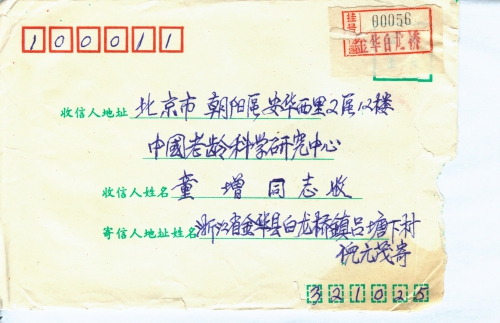 100011
挂号
00056
金华白龙桥
收信人地址 北京市朝阳區安华西里2區12楼
中國老龄科学研究中心
收信人姓名 童增同志收
寄信人地址姓名 浙江省金华县白龙桥鎮吕塘下村
倪元茂寄
321025